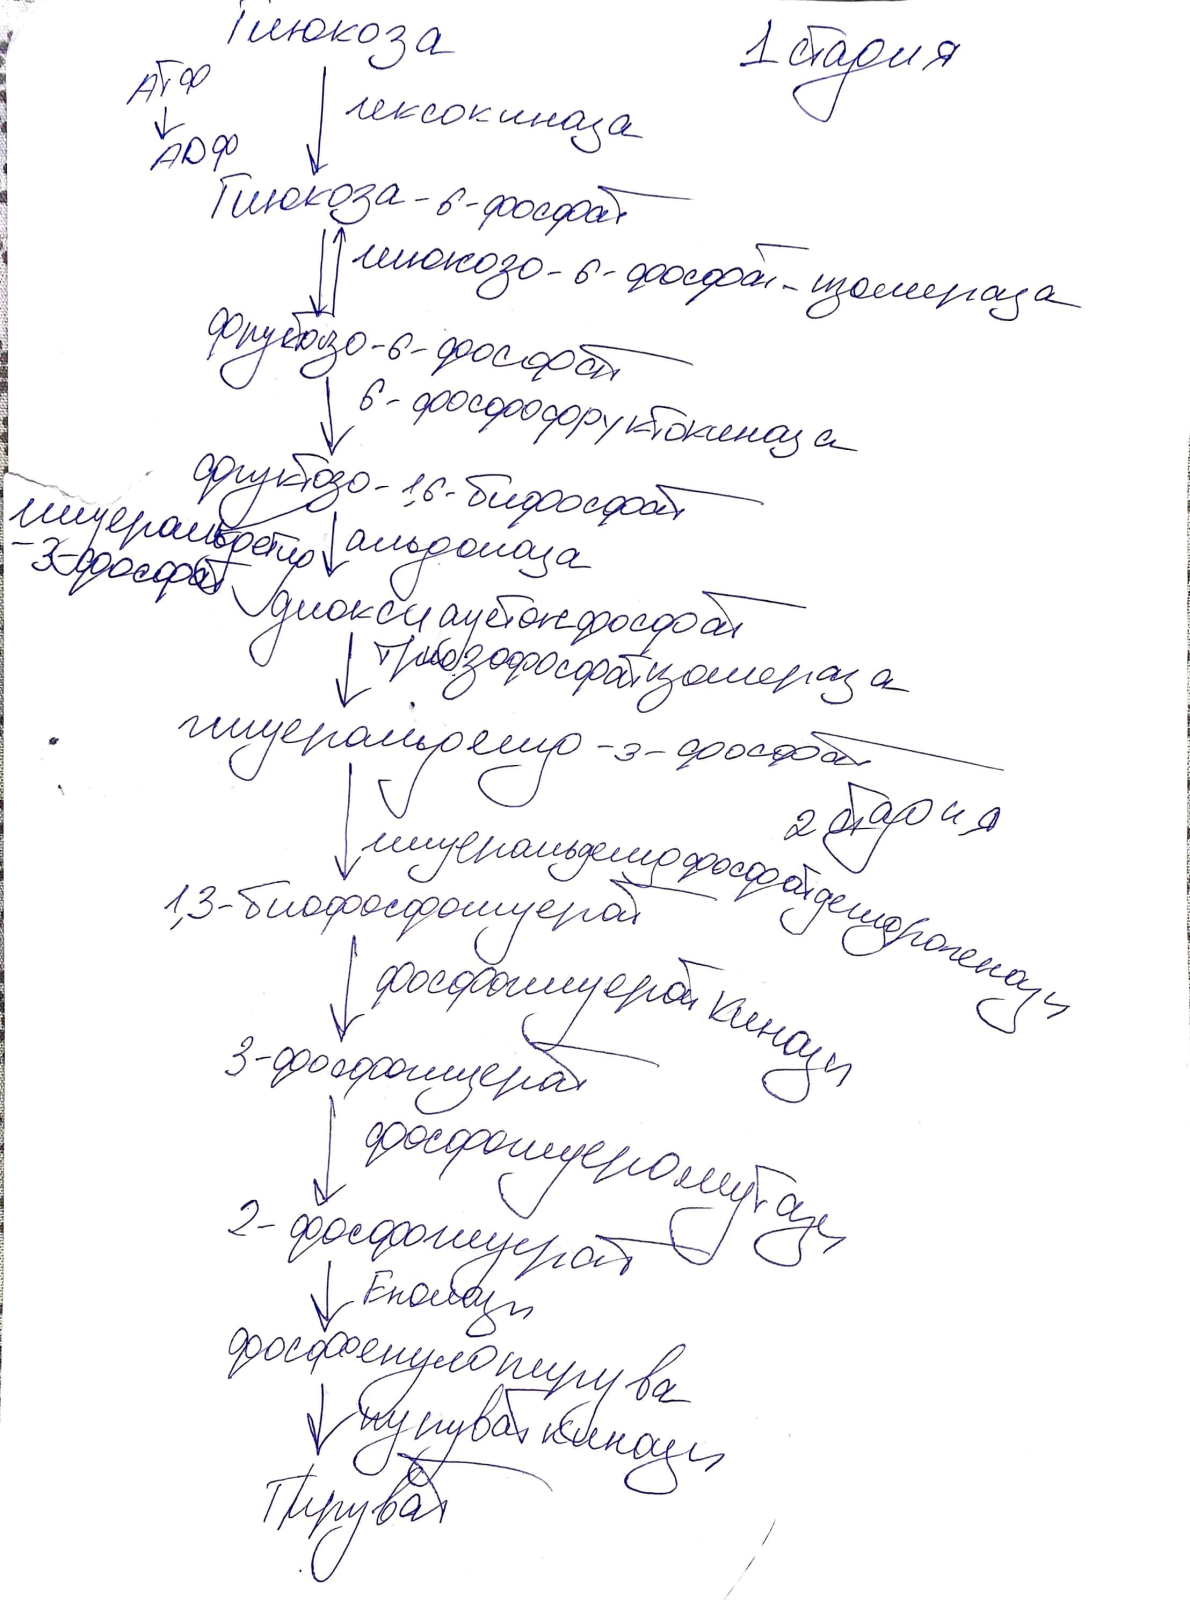 Глюкоза
1 стадия
АТФ
АДФ
гексокиназа
Глюкоза-6-фосфат
глюкозо-6-фосфат-изомераза
фруктозо-6-фосфат
6-фосфофруктокиназа
фруктозо-1,6-бифосфат
глицеральдегид
-3-фосфат
альдолаза
диоксиацетонфосфат
триозофосфатизомераза
глицеральдегид-3-фосфат
2 стадия
глицеральдегидфосфатдегидрогеназы
1,3-биофосфоглицерат
фосфоглицераткиназы
3-фосфоглицерат
фосфоглицеромутазы
2-фосфоглицерат
Енолазы
фосфоенулопирува
пируваткиназы
Пируват